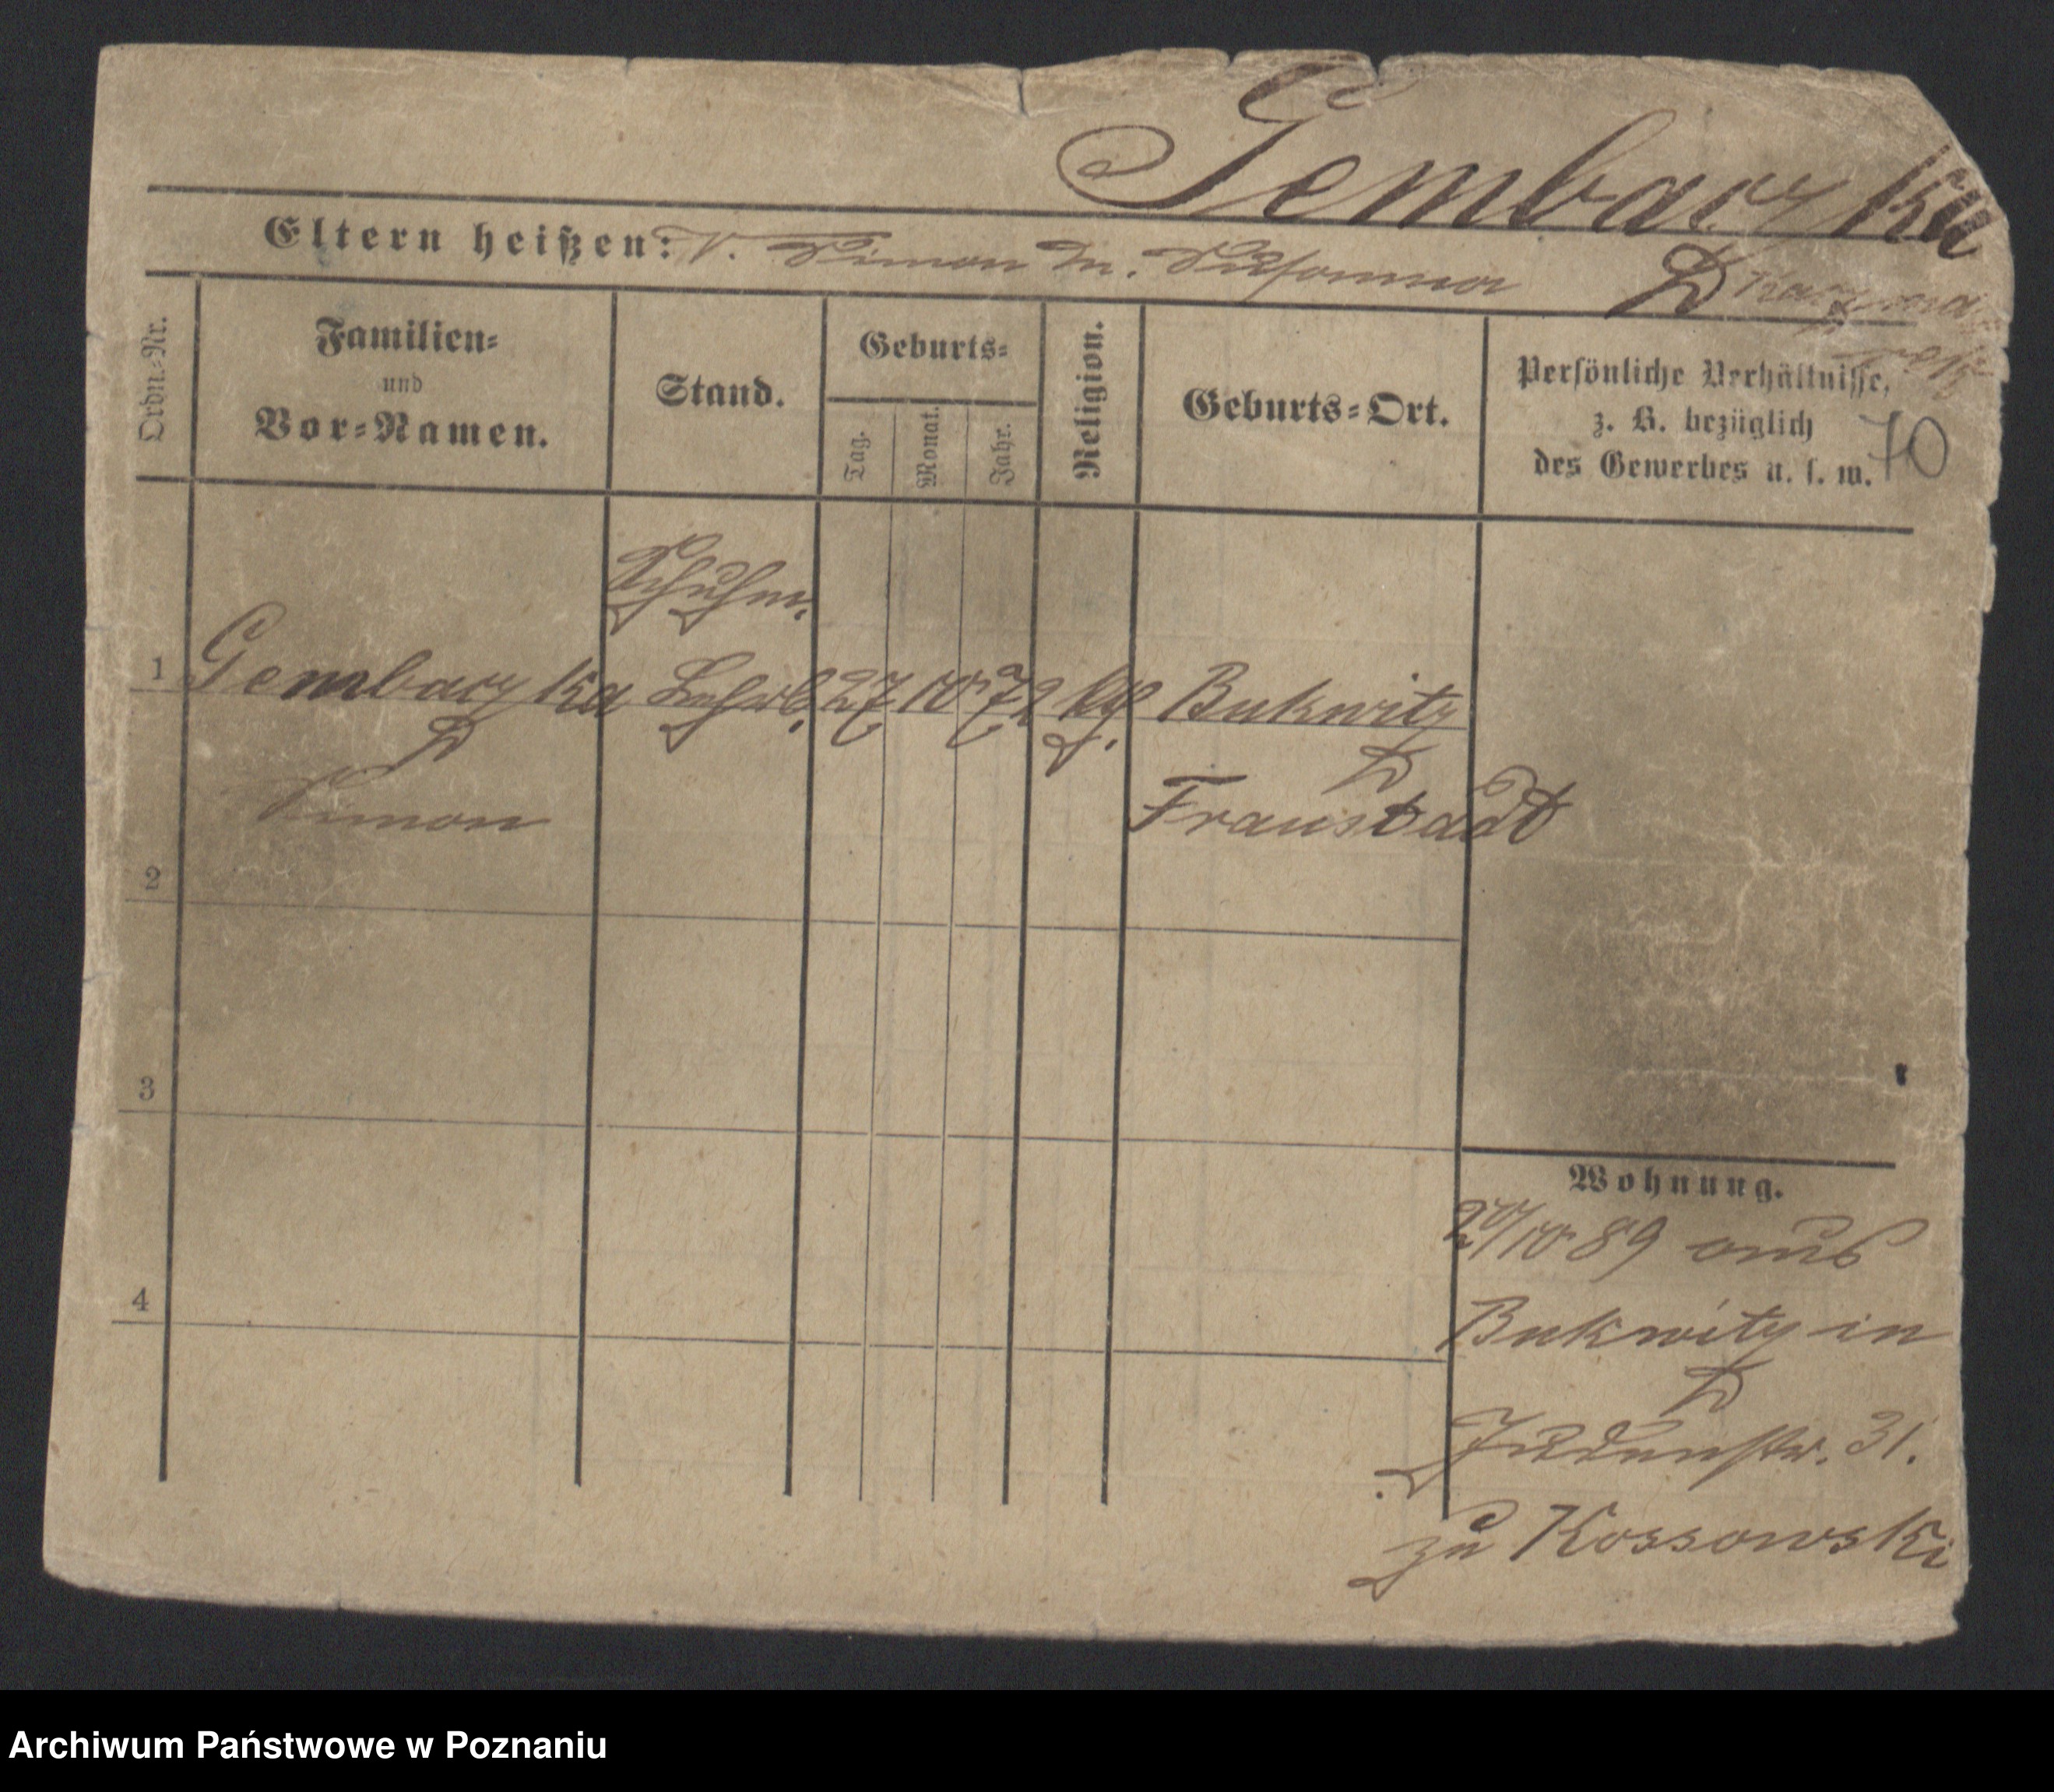 Gembaczka
Eltern heißen: V. Simon M. Susanna
Ordn.-Nr.
Familien-
und
Vor-Namen.
Stand.
Geburts-
Tag.
Monat.
Jahr.
Religion.
Geburts-Ort.
Persönliche Verhältnisse,
z. B. bezüglich
des Gewerbes u. s. w.
70
Schuhm.
1 Gembaczka Lehrl. 27 10 72 kth. Bukwitz
Simon
Fraustadt
2
3
4
Wohnung.
/10 89 aus
Bukwitz in
Judenstr. 31.
zu Kossowski
Archiwum Państwowe w Poznaniu